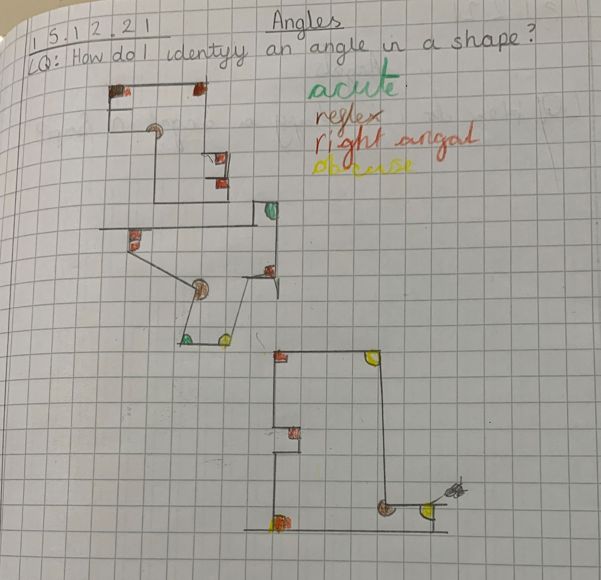 15.12.21
Angles
LQ: How do I identyy an angle in a shape?
acute
reglex
right angal
obtuse